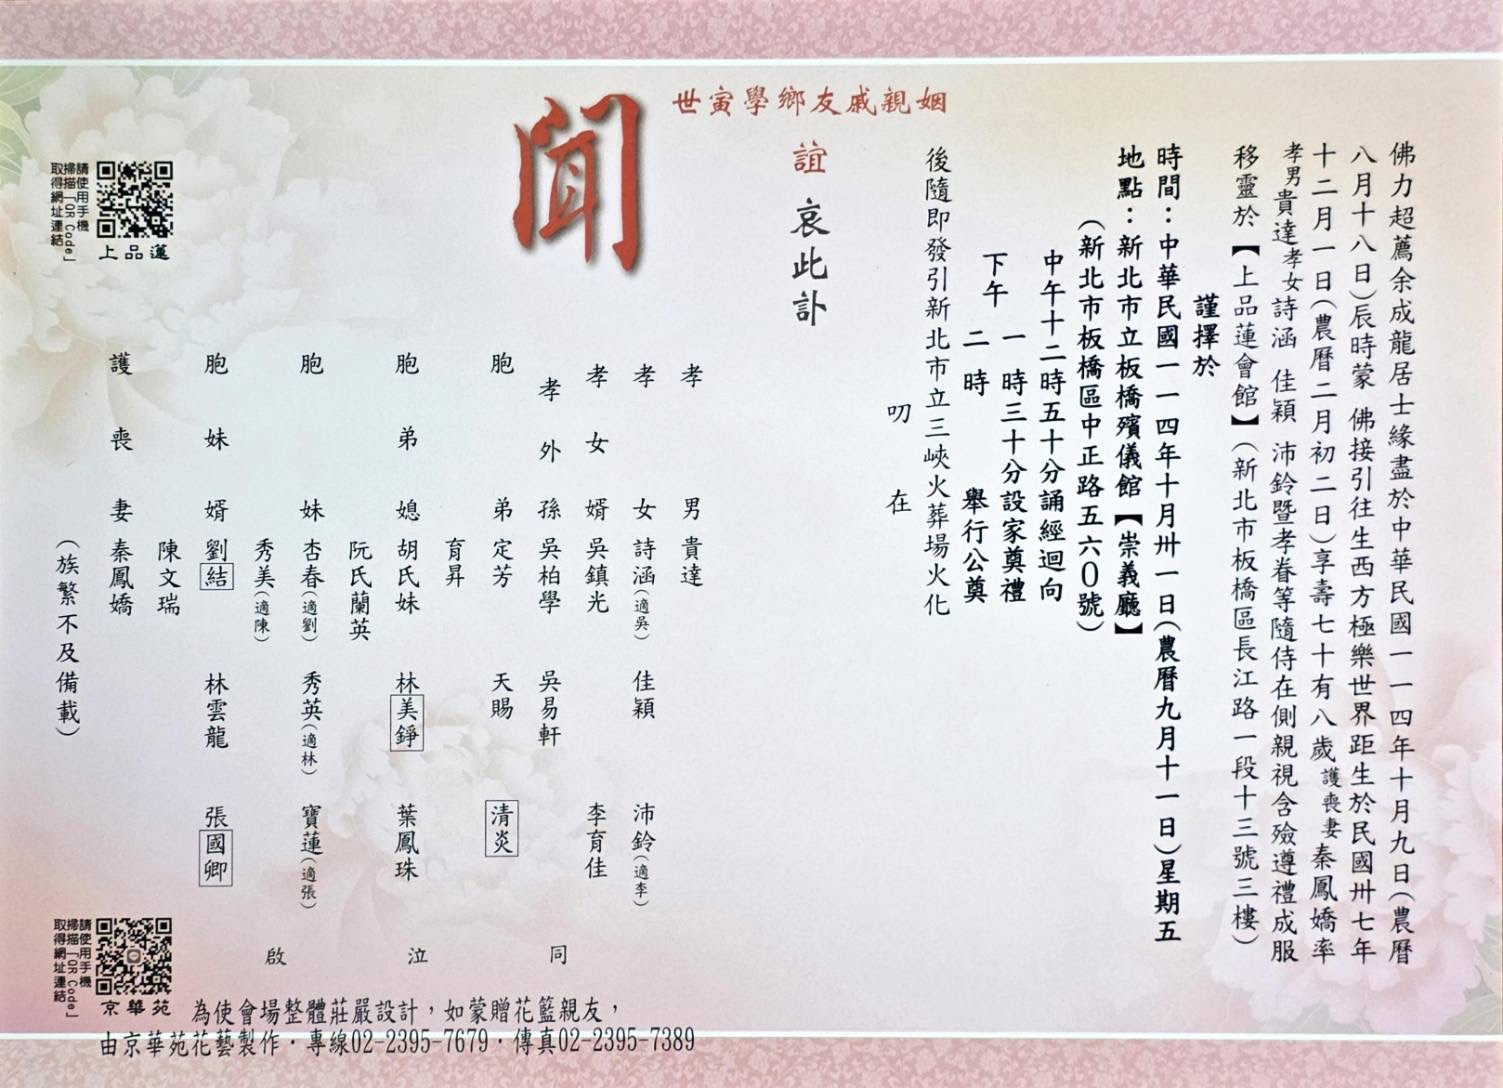 佛力超薦余成龍居士緣盡於中華民國一一四年十月九日(農曆
八月十八日)辰時蒙 佛接引往生西方極樂世界距生於民國卅七年
十二月一日(農曆二月初二日)享壽七十有八歲護喪妻秦鳳嬌率
孝男貴達孝女詩涵 佳穎 沛鈴暨孝眷等隨侍在側親視含殮遵禮成服
移靈於【上品蓮會館】(新北市板橋區長江路一段十三號三樓)
謹擇於
時間:中華民國一一四年十月卅一日(農曆九月十一日)星期五
地點:新北市立板橋殯儀館【崇義廳】
(新北市板橋區中正路五六0號)
中午十二時五十分誦經迴向
下午 一時三十分設家奠禮
二時 舉行公奠
後隨即發引新北市立三峽火葬場火化
叨在
世寅學鄉友戚親姻
誼 哀此訃
聞
孝男 貴達
孝女 詩涵(適吳) 佳穎 沛鈴(適李)
孝女婿 吳鎮光 李育佳
孝外孫 吳柏學 吳易軒
胞弟 定芳 天賜 清炎
育昇
胞弟媳 胡氏妹 林美錚 葉鳳珠
阮氏蘭英
胞妹 杏春(適劉) 秀英(適林) 寶蓮(適張)
秀美(適陳)
胞妹婿 劉結 林雲龍 張國卿
陳文瑞
護喪妻 秦鳳嬌
(族繁不及備載)
同 泣 啟
請使用手機
掃描「QR Code」
取得網址連結
上品蓮
請使用手機
掃描「QR Code」
取得網址連結
京華苑
為使會場整體莊嚴設計,如蒙贈花籃親友,
由京華苑花藝製作·專線02-2395-7679·傳真02-2395-7389